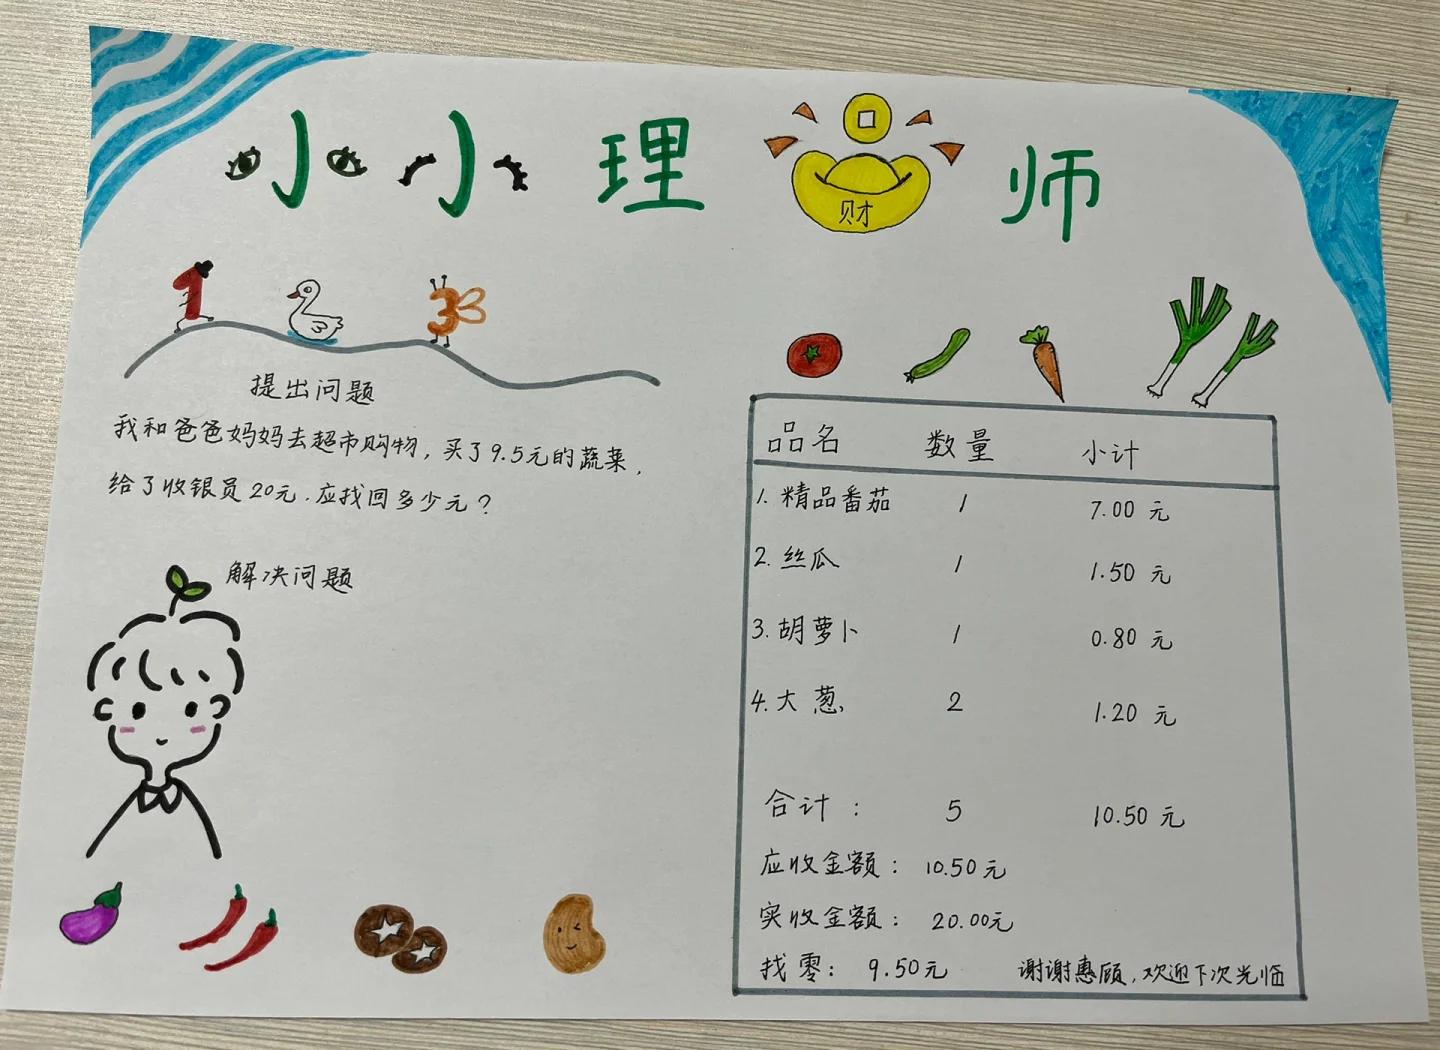 小小理财师
提出问题
我和爸爸妈妈去超市购物，买了9.5元的蔬菜，
给了收银员20元.应找回多少元？
解决问题
品名 数量 小计
1. 精品番茄 1 7.00 元
2. 丝瓜 1 1.50 元
3. 胡萝卜 1 0.80 元
4. 大葱 2 1.20 元
合计： 5 10.50 元
应收金额：10.50元
实收金额：20.00元
找零：9.50元 谢谢惠顾,欢迎下次光临